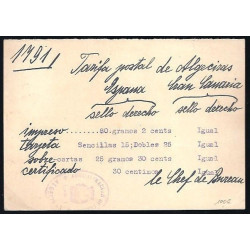 1791
Tarifa postal de Algeciras
Espana Gran Canaria
sello derecho sello derecho
impreso.........60 gramos 2 cents Igual
tarjeta Sencillas 15;Dobles 25 Igual
sobre-cartas 25 gramos 30 cents Igual
certificado 30 centimos Igual
Le Chef de Bureau